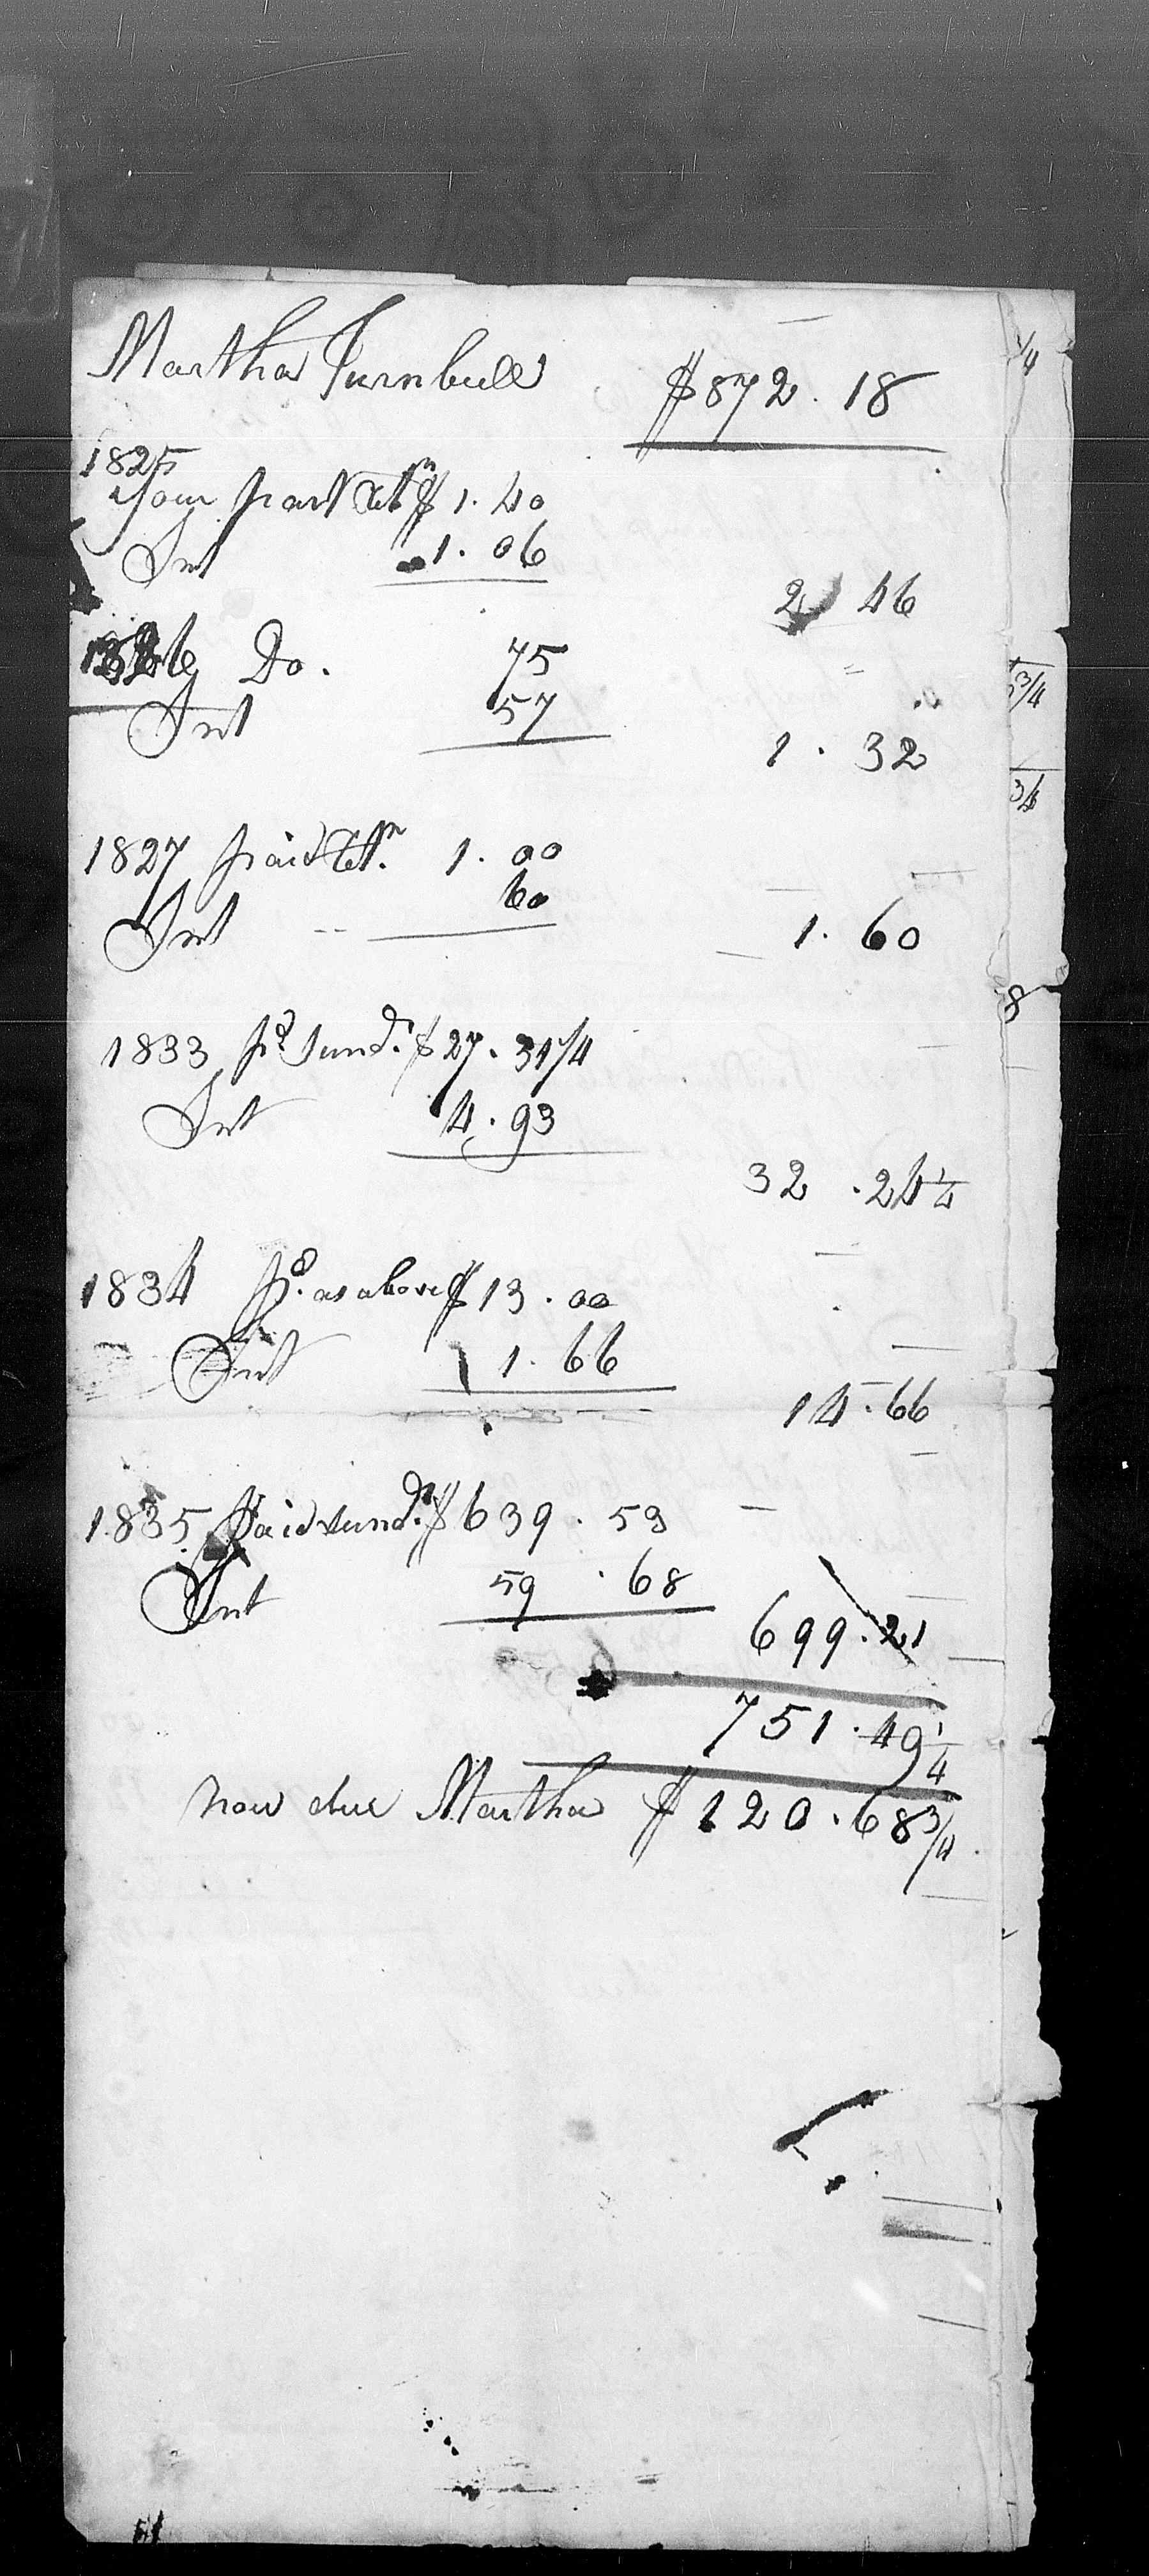 Martha Turnbull $872.18
1825
Your part Ctn $ 1.40
Int 1.06
2 46
1826 Do. 75
Int 57
1.32
1827 paid Ctn. 1.00
60
Int -- 1.60
1833 pd. sunds. $27.31 1/4
Int 4.93
32.24 1/4
1834 pd. as above $13.00
Int 1.66
14.66
1835 Paid sunds. $639.53
Int 59.68
699.21
751.49 1/4
now due Martha $120.68 3/4
1/4
3/4
3/4
8